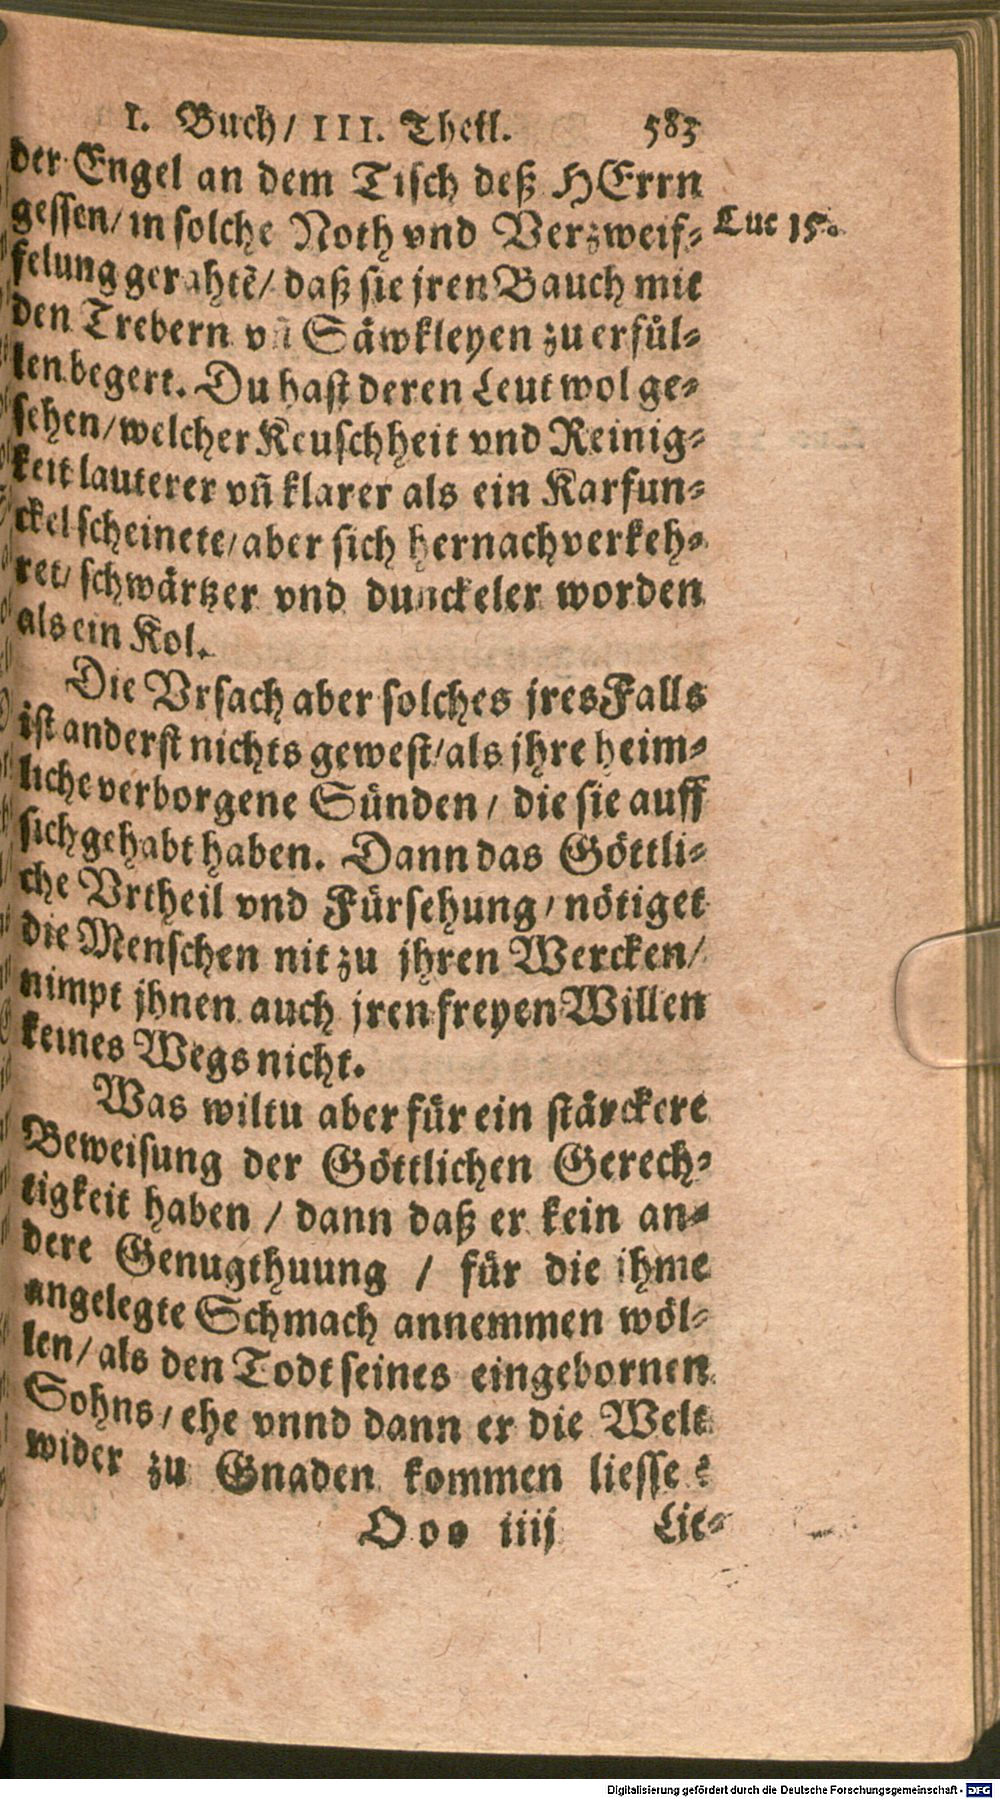 I. Buch / III. Theil. 583
der Engel an dem Tisch deß HErrn
gessen / in solche Noth vnd Verzweif-
Luc 15.
felung gerahtē / daß sie jren Bauch mit
den Trebern vñ Säwkleyen zu erfül-
len begert. Du hast deren Leut wol ge-
sehen / welcher Keuschheit vnd Reinig-
keit lauterer vñ klarer als ein Karfun-
ckel scheinete / aber sich hernach verkeh-
ret / schwärtzer vnd dunckeler worden
als ein Kol.
Die Vrsach aber solches jres Falls
ist anderst nichts gewest / als jhre heim-
liche verborgene Sünden / die sie auff
sich gehabt haben. Dann das Göttli-
che Vrtheil vnd Fürsehung / nötiget
die Menschen nit zu jhren Wercken /
nimpt jhnen auch jren freyen Willen
keines Wegs nicht.
Was wiltu aber für ein stärckere
Beweisung der Göttlichen Gerech-
tigkeit haben / dann daß er kein an-
dere Genugthuung / für die ihme
angelegte Schmach annemmen wöl-
len / als den Todt seines eingebornen
Sohns / ehe vnnd dann er die Welt
wider zu Gnaden kommen liesse ?
Ooo iiij Lie-
Digitalisierung gefördert durch die Deutsche Forschungsgemeinschaft - DFG